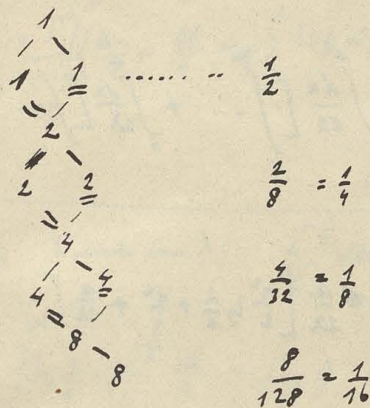 1
1 1 ........ .. 1/2
2
2 2 2/8 = 1/4
4
4 4 4/32 = 1/8
8
8 8/128 = 1/16